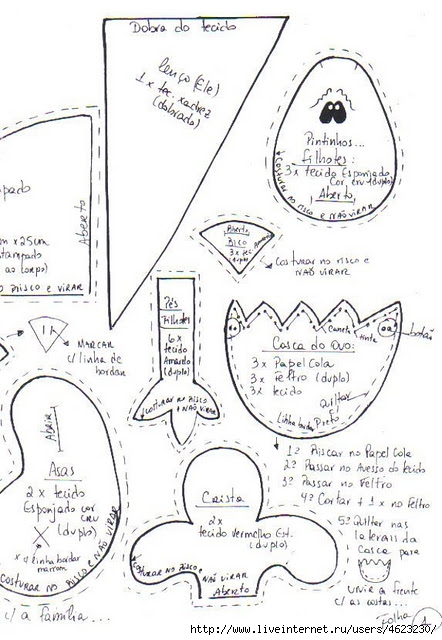 Dobra do tecido
Lenço (Ele)
1 x tec. xadrez
(dobrado)
Pintinhos...
Filhotes:
3x tecido Esponjado
Cor cru (duplo)
Aberto
Costurar no risco e NÃO VIRAR
pado
Aberto
m x 25cm
stampado
ao longo)
RISCO E VIRAR
Aberto
Bico
3 x tec.
Amarelo
(duplo)
Costurar no risco e
NÃO VIRAR
MARCAR
c/ linha de
bordar
Pés
Filhotes
6x
tecido
Amarelo
(duplo)
Costurar no Risco
e NÃO VIRAR
Caneta
tinta
botão
Casca do Ovo:
3x Papel Cola
3x Feltro (duplo)
3x tecido
Quiltar
Linha bordar Preto
1º Riscar no Papel Cola
2º Passar no Avesso do tecido
3º Passar no Feltro
4º Cortar + 1 x no Feltro
5º Quilter nas
laterais da
Casca para
unir a frente
c/ as costas...
Abrir
Asas
2 x tecido
Esponjado cor
cru
(duplo)
x c/ linha bordar
marrom
COSTURAR NO RISCO E NÃO VIRAR
Crista
2x
tecido vermelho Est.
(duplo)
Costurar no Risco e
NÃO VIRAR
Aberto
c/ a família...
Folha 1
http://www.liveinternet.ru/users/4623230/